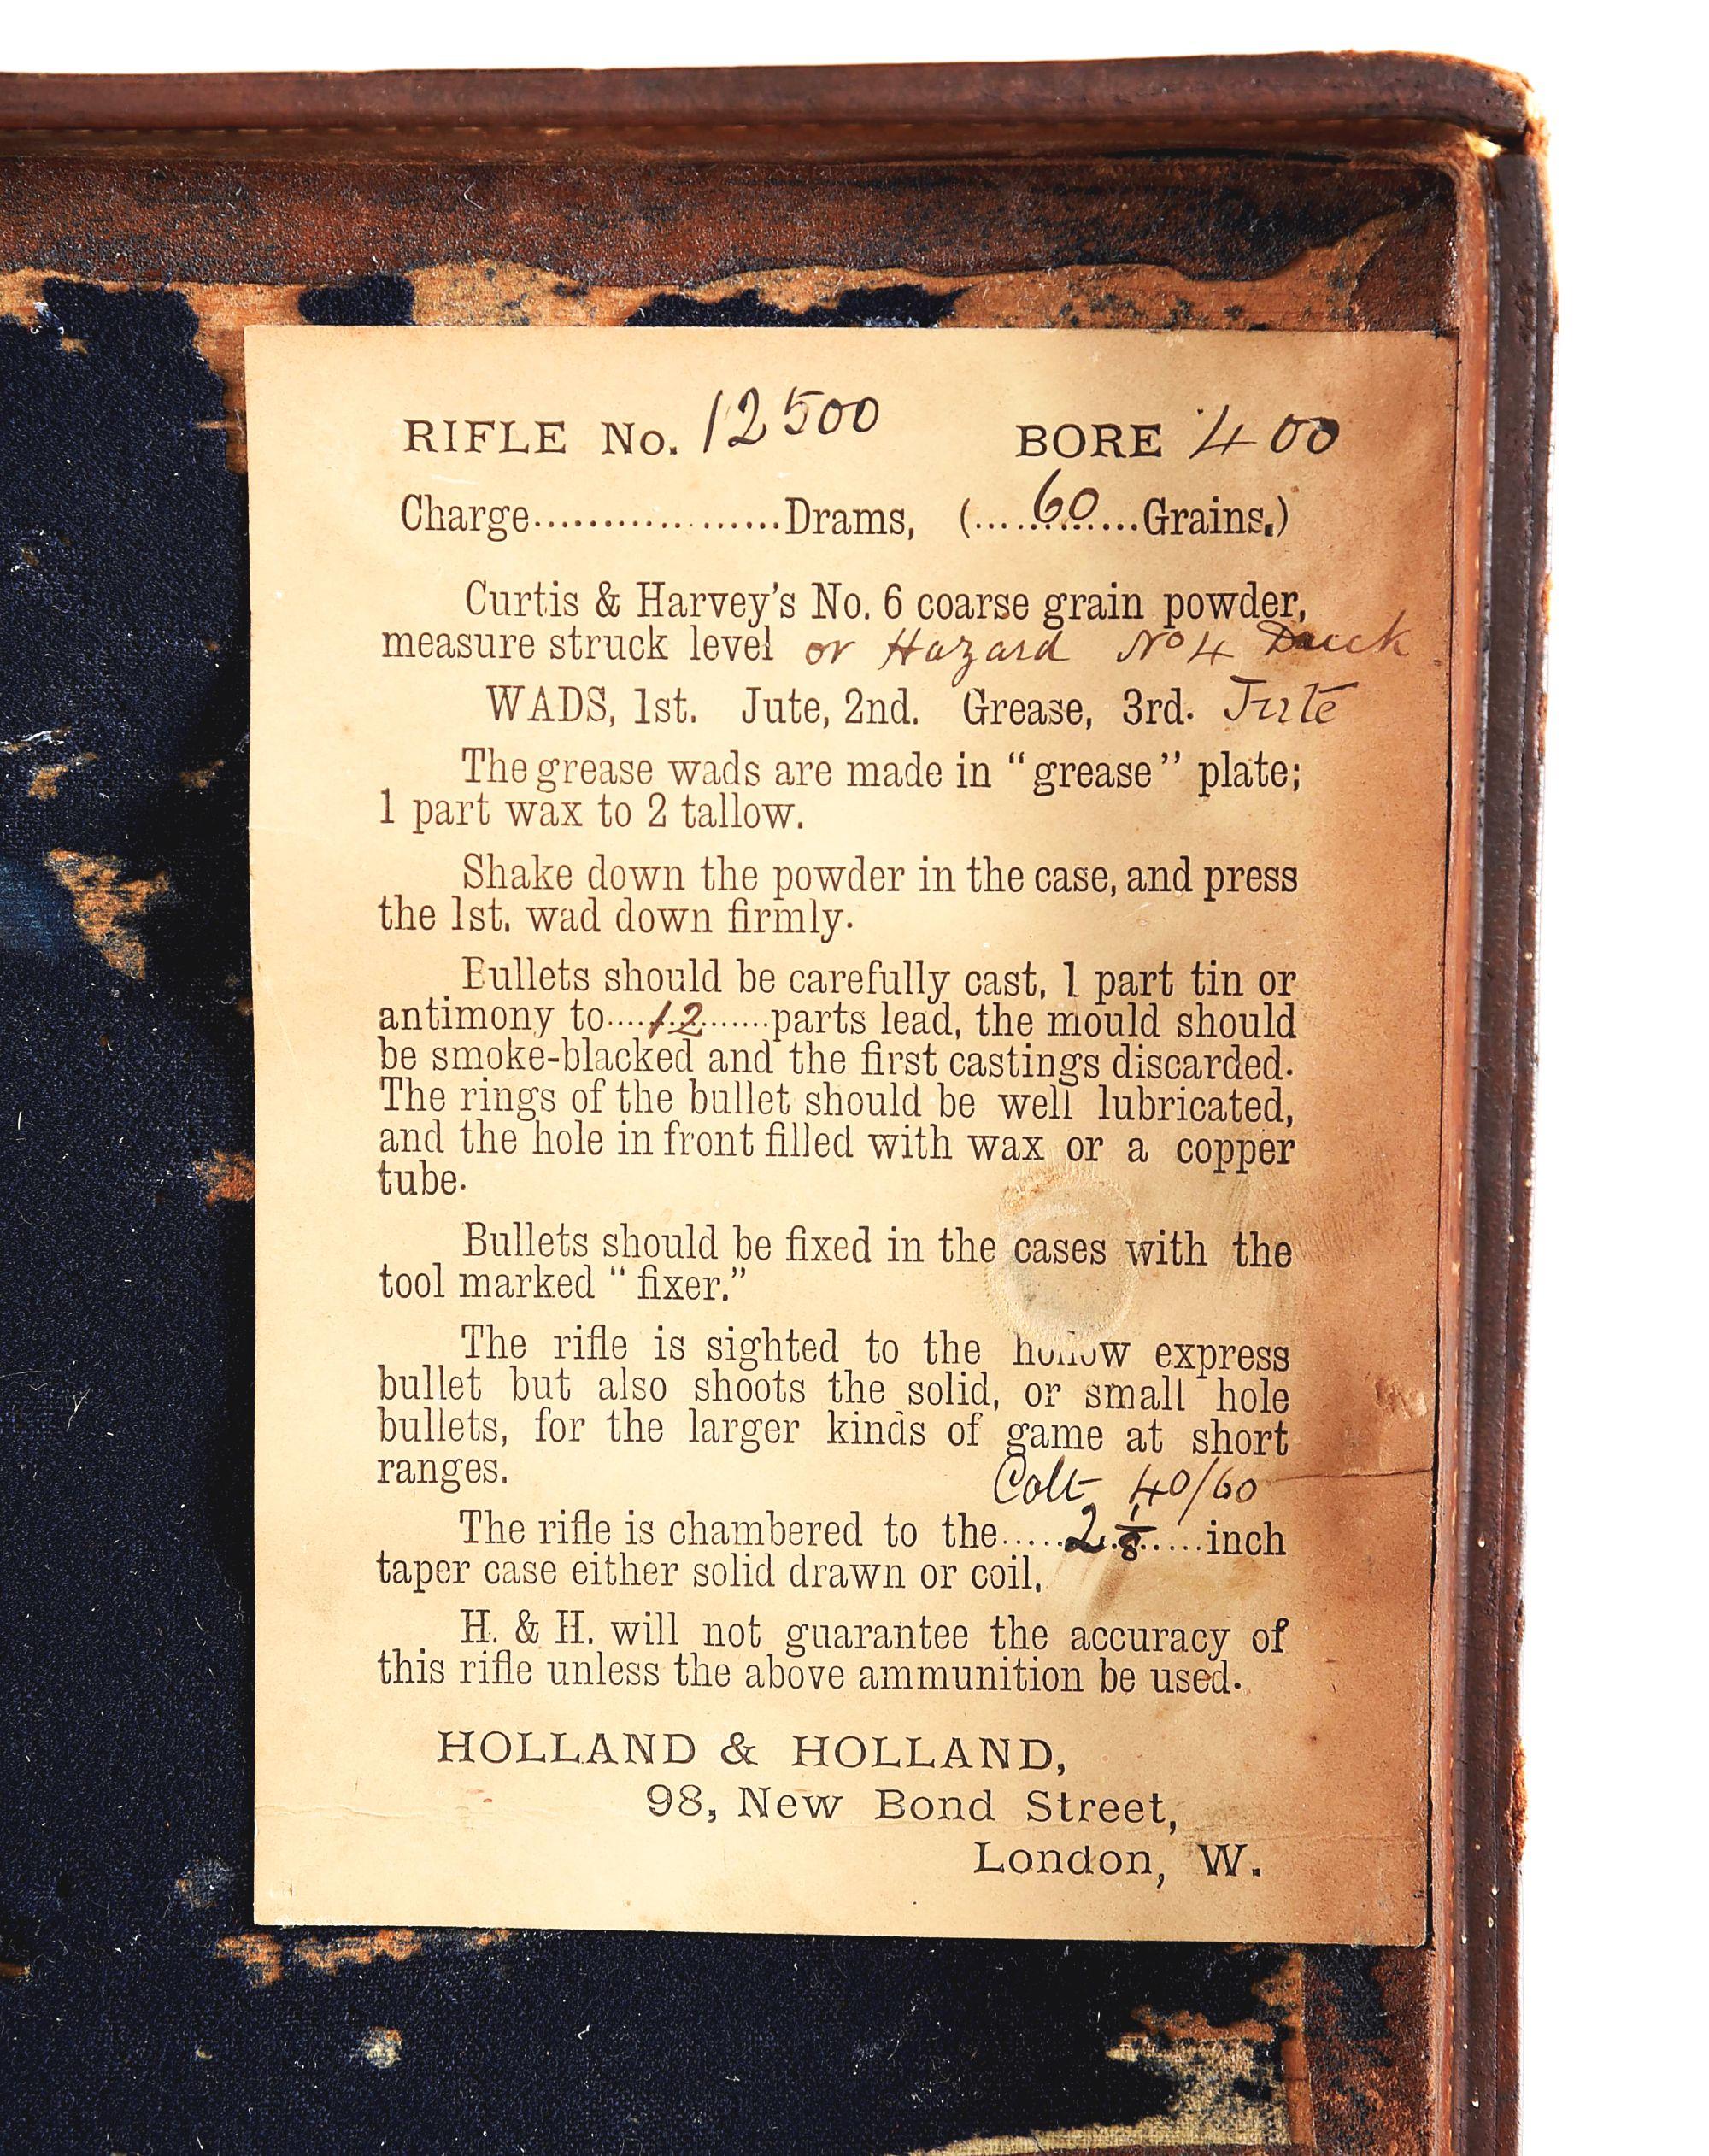 RIFLE No. 12500 BORE .400
Charge...................Drams, (....60....Grains.)
Curtis & Harvey's No. 6 coarse grain powder,
measure struck level or Hazard No 4 Duck
WADS, 1st. Jute, 2nd. Grease, 3rd. Jute
The grease wads are made in "grease" plate;
1 part wax to 2 tallow.
Shake down the powder in the case, and press
the 1st. wad down firmly.
Bullets should be carefully cast, 1 part tin or
antimony to....12........parts lead, the mould should
be smoke-blacked and the first castings discarded.
The rings of the bullet should be well lubricated,
and the hole in front filled with wax or a copper
tube.
Bullets should be fixed in the cases with the
tool marked "fixer."
The rifle is sighted to the hollow express
bullet but also shoots the solid, or small hole
bullets, for the larger kinds of game at short
ranges.
Colt 40/60
The rifle is chambered to the.....2 1/8.....inch
taper case either solid drawn or coil.
H. & H. will not guarantee the accuracy of
this rifle unless the above ammunition be used.
HOLLAND & HOLLAND,
98, New Bond Street,
London, W.